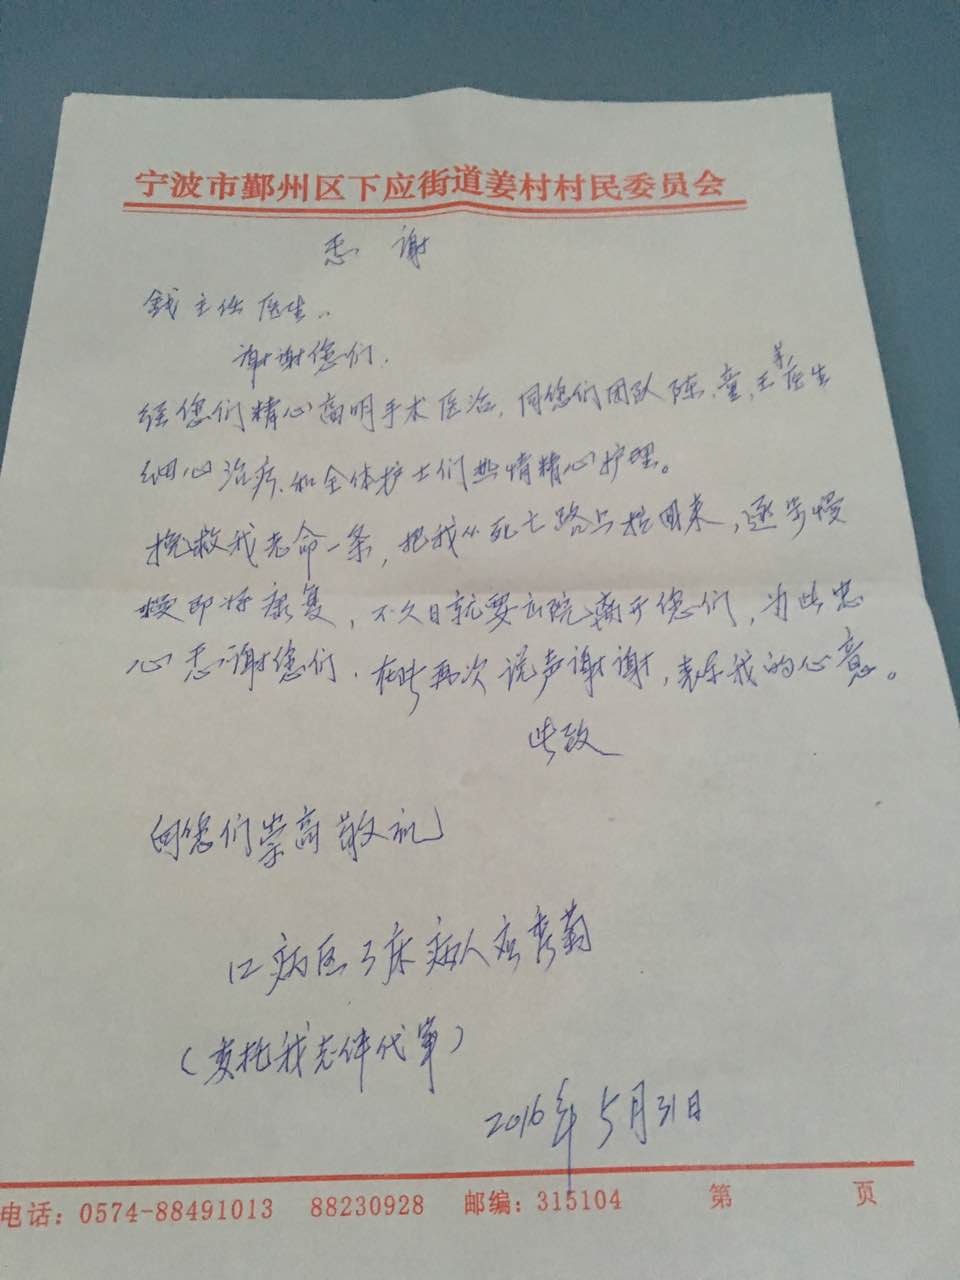 宁波市鄞州区下应街道姜村村民委员会
感谢
钱主任医生:
谢谢您们.
经您们精心高明手术医治,同您们团队陈,童,王等医生
细心治疗,和全体护士们热情精心护理。
挽救我老命一条,把我从死亡路上抢回来,逐步慢
慢即将康复,不久日就要出院离开您们,为此忠
心感谢您们.在此再次说声谢谢,表示我的心意。
此致
向您们崇高敬礼
12病区3床病人 秀菊
(委托我老伴代笔)
2016年5月31日
电话:0574-88491013 88230928 邮编:315104 第 页